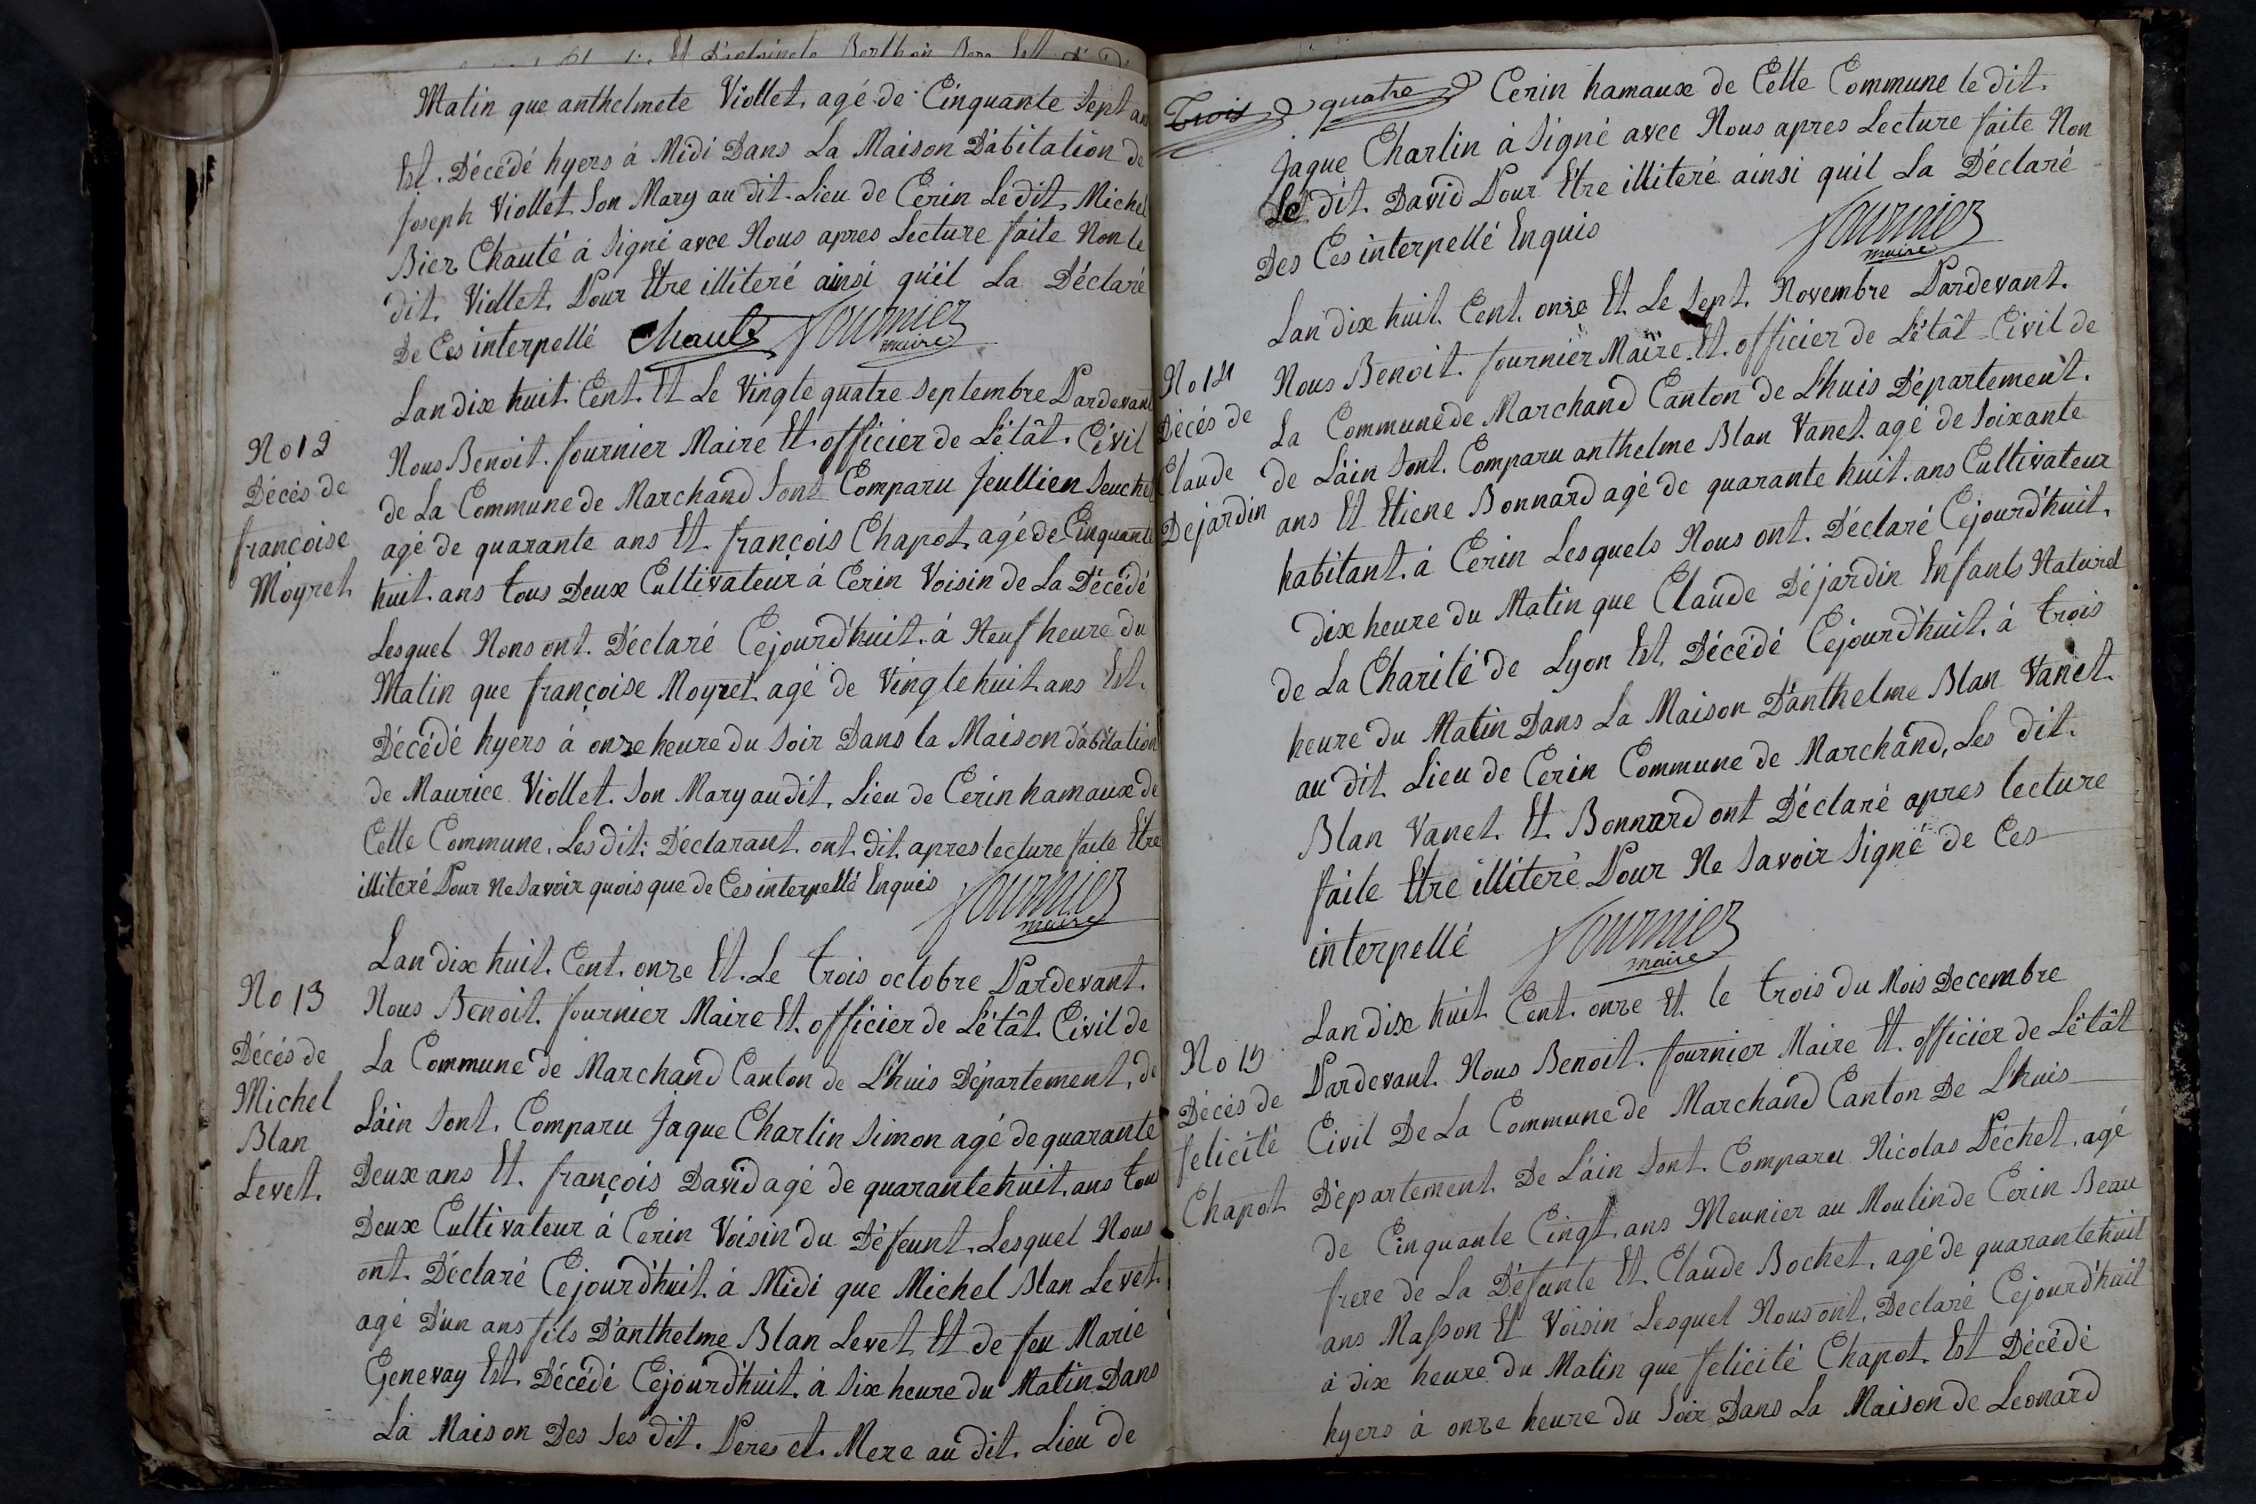 Matin que anthelmete Viollet, agé de Cinquante Sept ans
Est. Décédé hyers à Midi Dans La Maison D'abitation de
Joseph Viollet Son Mary au dit. Lieu de Cerin Le dit, Michel
Bier Chauté à Signé avec Nous apres Lecture faite Non le
dit. Viollet. Pour Etre illiteré ainsi qu'il La Déclaré
De Ces interpellé Chauté fournier
maire
No 12
Décès de
françoise
Moyret
Lan dix huit. Cent. Et Le Vingte quatre Septembre Pardevant
Nous Benoit. fournier Maire Et. officier de L'état. Civil
de La Commune de Marchand Sont Comparu Jeullien
agé de quarante ans Et. françois Chapot, agé de Cinquante
huit. ans tous Deux Cultivateur á Cerin Voisin de La Décédé
Lesquel Nous ont. Déclaré Cejourd'huit. á Neuf heure du
Matin que françoise Moyret agé de Vingte huit ans Est.
Décédé hyers á onze heure du Soir Dans la Maison d'abitation
de Maurice Viollet. Son Mary au dit, Lieu de Cerin hamaux de
Cette Commune. Les dit: Déclarant. ont dit apres lecture faite Etre
illiteré Pour Ne Savoir quois que de Ces interpellé Enquis fournier
maire
No 13
Décés de
Michel
Blan
Levet.
Lan dix huit. Cent. onze Et. Le trois octobre Pardevant.
Nous Benoit. fournier Maire Et. officier de L'état Civil de
La Commune de Marchand Canton de L'huis Département, de
L'ain Sont. Comparu Jaque Charlin Simon agé de quarante
Deux ans Et. françois David agé de quarante huit, ans tous
Deux Cultivateur á Cerin Voisin du Défeunt. Lesquel Nous
ont. Déclaré Cejourd'huit. á Midi que Michel Blan Levet.
agé D'un ans fils D'anthelme Blan Levet Et de feu Marie
Genevay Est. Décédé Cejourd'huit. á Six heure du Matin Dans
La Maison Des Ses dit. Peres et. Mere au dit. Lieu de
Trois quatre Cerin hamaux de Cette Commune le dit.
Jaque Charlin à Signé avec Nous apres Lecture faite Non
Le dit. David Pour Etre illiteré ainsi quil La Déclaré
Des Ces interpellé Enquis fournier
maire
No 14
Décés de
Claude
Dejardin
Lan dix huit. Cent. onze Et. Le Sept. Novembre Pardevant.
Nous Benoit. fournier Maire Et. officier de L'état Civil de
La Commune de Marchand Canton de L'huis Département.
de L'ain Sont. Comparu anthelme Blan Vanet agé de Soixante
ans Et Etiene Bonnard agé de quarante huit. ans Cultivateur
habitant. á Cerin Lesquels Nous ont. Déclaré Cejourd'huit.
dix heure du Matin que Claude Déjardin Enfants Naturel
de La Charité de Lyon Est, Décédé Cejourd'huit, á trois
heure du Matin Dans La Maison D'anthelme Blan Vanet
au dit Lieu de Cerin Commune de Marchand, Les dit.
Blan Vanet. Et. Bonnard ont Déclaré apres lecture
faite Etre illiteré Pour Ne Savoir Signé de Ces
interpellé fournier
maire
No 15
Décès de
felicité
Chapot
Lan dix huit Cent. onze Et. le trois du Mois Decembre
Pardevant. Nous Benoit. fournier Maire Et. officier de L'état
Civil De La Commune de Marchand Canton De L'huis
Département. De L'ain Sont. Comparu Nicolas Péchet, agé
de Cinquante Cinqt, ans Meunier au Moulin de Cerin Beau
frere de La Défunte Et. Claude Bochet, agé de quarante huit
ans Masson Et Voisin Lesquel Nous ont, Declaré Cejourd'huit
à dix heure du Matin que felicité Chapot, Est Décédé
hyers à onze heure du Soir Dans La Maison de Leonard